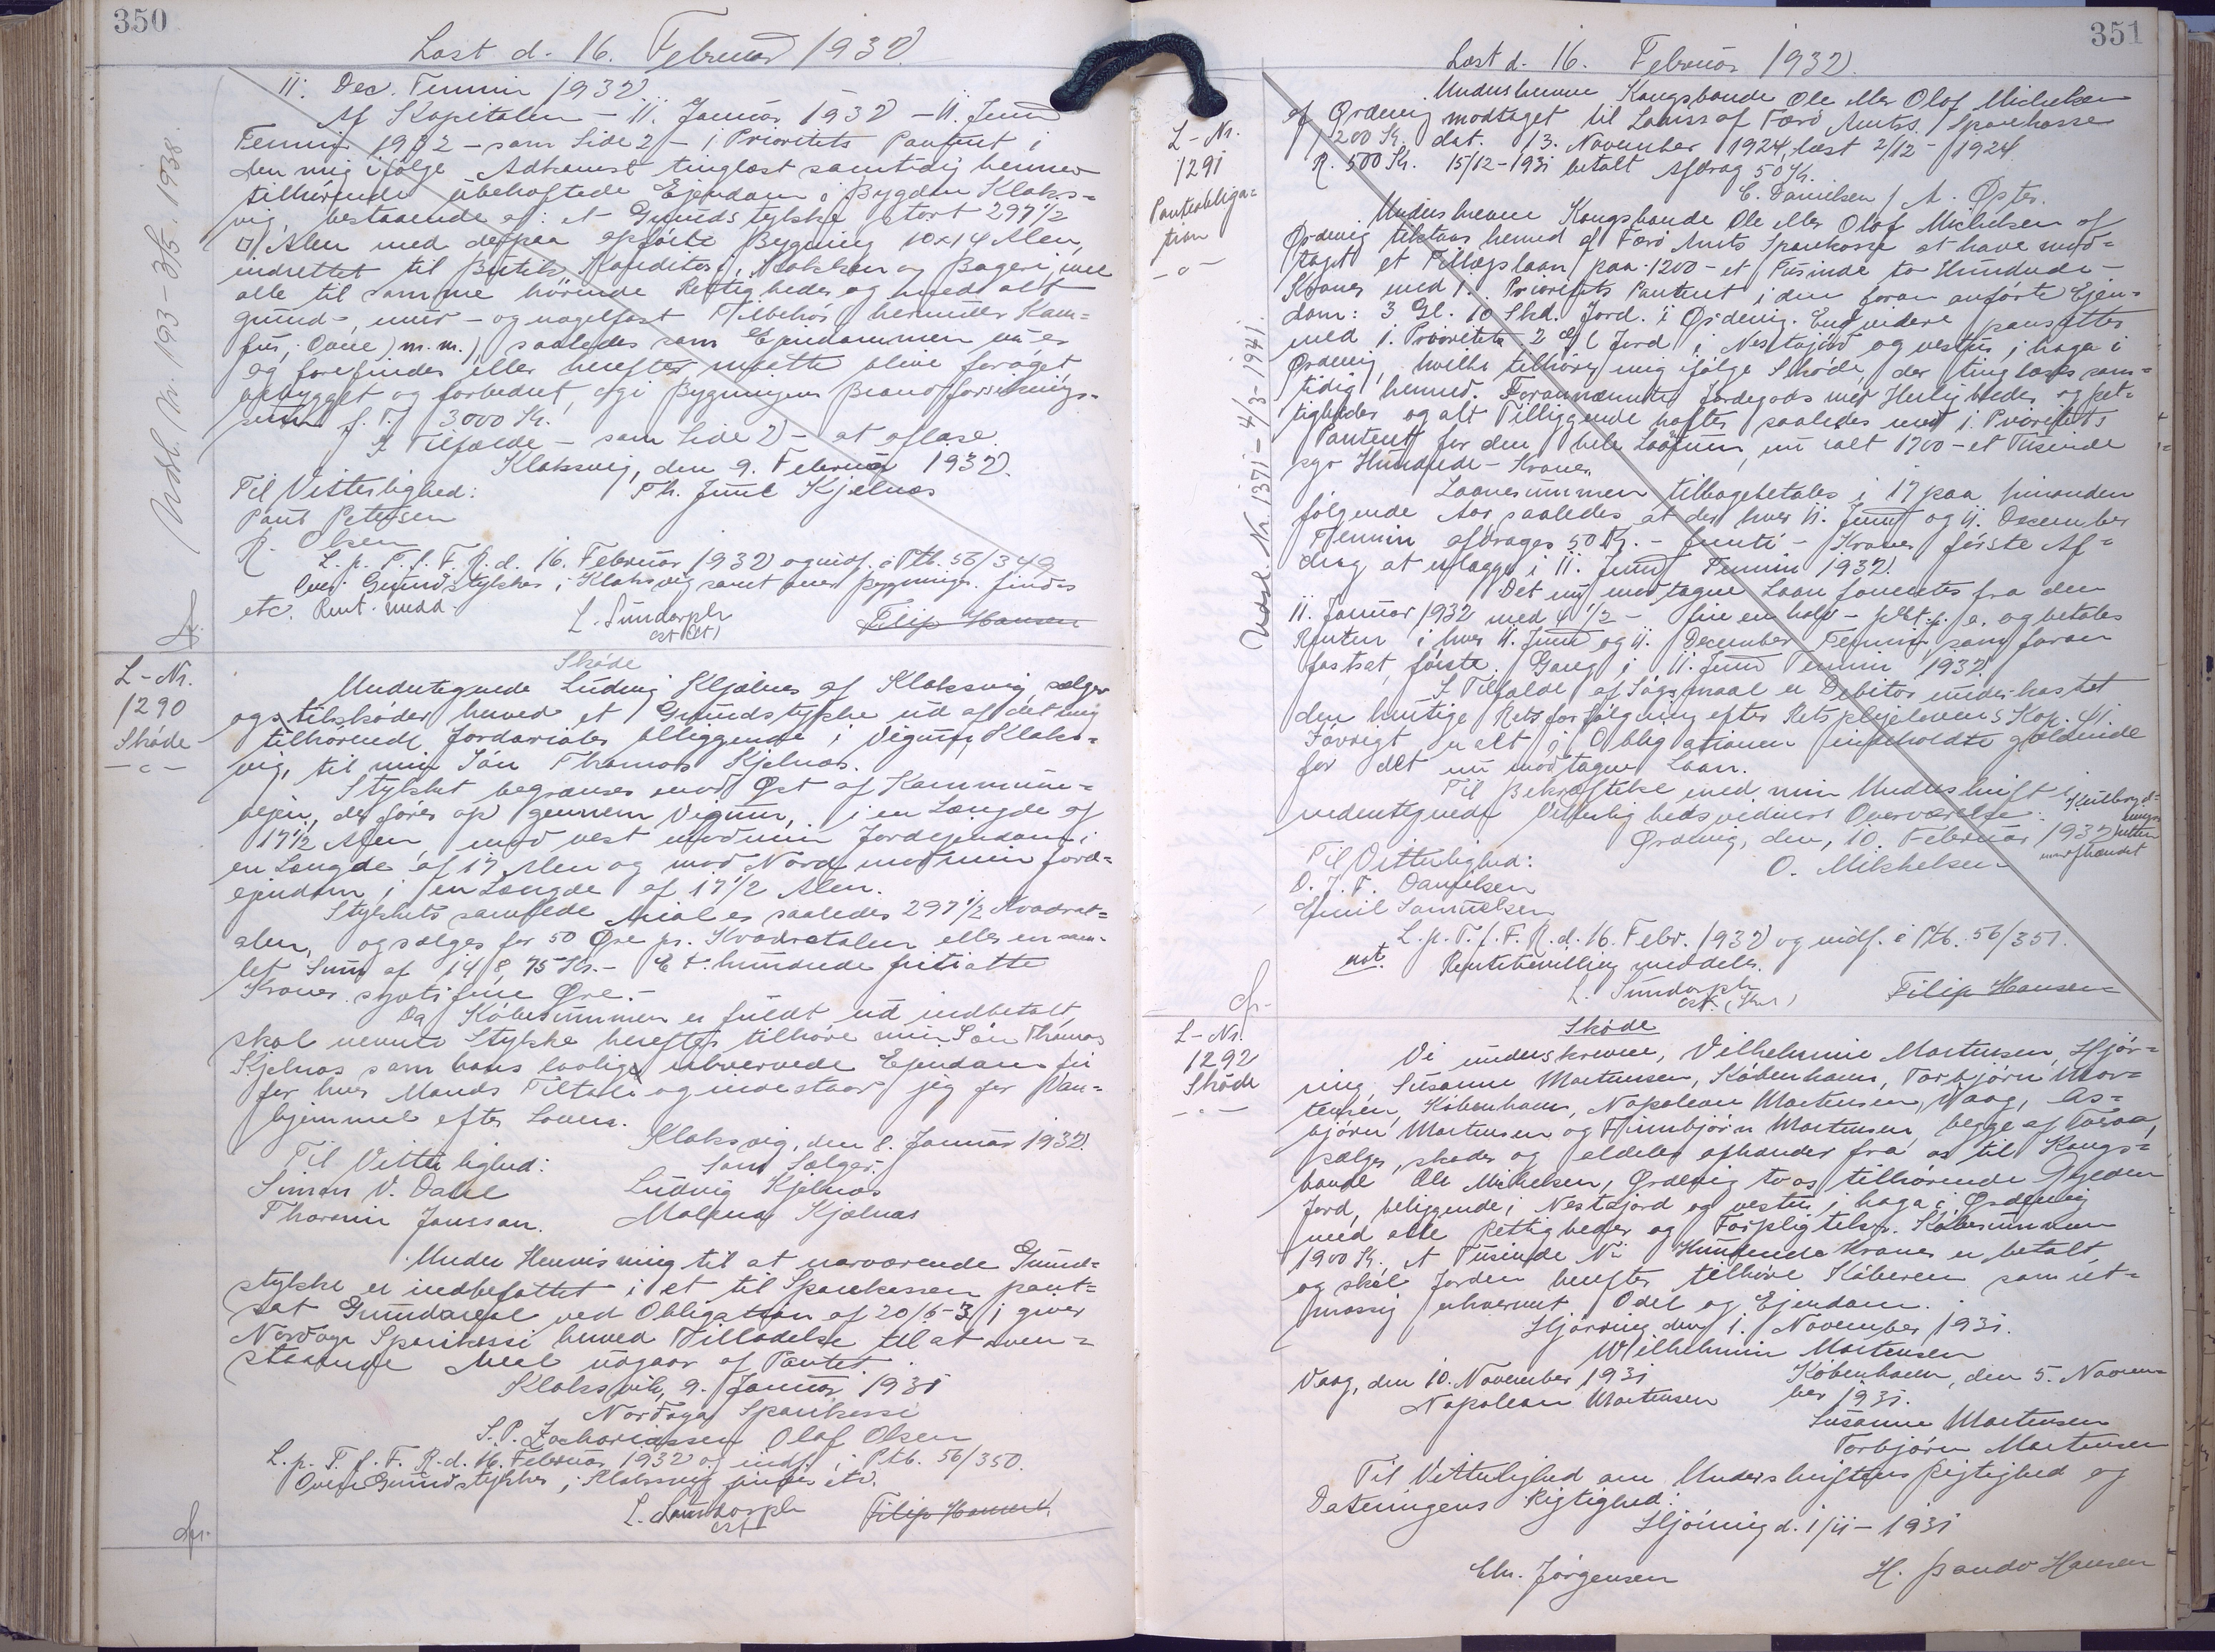 350
Læst d. 16. Februar 1932.
Udsl. Nr. 193 - 3/5. 1938.
11. Dec. Termin 1932
Af Kapitalen - 11. Januar 1932 - 11. Juni
Termin 1932 - som Side 2 - 1. Prioritets Panteret i
den mig ifølge Adkomst tinglæst samtidig hermed
tilhørende ubehæftede Ejendom i Bygden Klaks=
vig, bestaaende af: et Grundstykke stort 297 1/2
□ Alen med derpaa opførte Bygning 10x14 Alen,
indrettet til Butik, Konditori, Køkken og Bageri, med
alle til samme hørende Rettigheder og med alt
grund-, mur- og nagelfast Tilbehør herunder Kom=
fur, Ovne m.m., saaledes som Ejendommen nu er
og forefindes eller herefter maatte blive forøget
opbygget og forbedret, og i Bygningens Brandforsikrings=
sum f. T. 3000 Kr.
I Tilfælde - som Side 2 - at aflæse.
Klaksvig, den 9. Februar 1932.
Til Vitterlighed: Th. Juul Kjølnæs
Poul Petersen
R. Olsen
L. p. T. f. F. R. d. 16. Februar 1932 og indf. i Ptb. 56/349
Over Grundstykker i Klaksvig samt over Bygninger findes
etc. Rent. medd.
L. Sundorph
cst (St) Filip Hansen
L-Nr.
1290
Skøde
Skøde
Undertegnede Ludvig Kjølnes af Klaksvig, sælger
og tilskøder herved et Grundstykke ud af det mig
tilhørende Jordareal beliggende i Vigum, Klaks=
vig, til min Søn Thomas Kjølnæs.
Stykket begrænses mod Øst af Kommune=
vejen, der føres op gennem Vigum, i en Længde af
17 1/2 Alen, mod vest mod min Jordejendom i
en Længde af 17 Alen og mod Nord mod min Jord=
ejendom i en Længde af 17 1/2 Alen.
Stykkets samlede Areal er saaledes 297 1/2 Kvadrat=
alen, og sælges for 50 Øre pr. Kvadratalen eller en sam=
let Sum af 148,75 Kr. - Et hundrede fyrti otte
Kroner syvti fem Øre. -
Da Købesummen er fuldt ud indbetalt,
skal nævnte Stykke herefter tilhøre min Søn Thomas
Kjølnæs som hans lovlige erhvervede Ejendom fri
for hver Mands Tiltale og indestaar jeg for Van=
hjemmel efter Loven.
Klaksvig, den 8. Januar 1932.
Til Vitterlighed: Som Sælger:
Simon V. Dahl Ludvig Kjølnæs
Thorarin Jansson. Malena Kjølnæs
Under Henvisning til at nærværende Grund=
stykke er indbefattet i et til Sparekassen pant=
sat Grundareal ved Obligation af 20/6-31 giver
Nordoya Sparikassi herved Tilladelse til at oven=
staaende Areal udgaar af Pantet.
Klaksvik, 9. Januar 1931
Nordoya Sparikassi
S. P. Zachariassen Olaf Olsen
L. p. T. f. F. R. d. 16. Februar 1932 og indf. i Ptb. 56/350.
Over Grundstykker i Klaksvig findes etc.
L. Sundorph
cst Filip Hansen.
351
Læst d. 16. Februar 1932.
L-Nr.
1291
Panteobliga=
tion
Udsl. Nr. 1371 - 4/3-1941.
Underskrevne Kongsbonde Ole eller Olof Michelsen
af Ørdevig modtaget til Laans af Færø Amts Sparekasse
1200 Kr. dat. 13. November 1924, læst 2/12-1924
R. 500 Kr. 15/12-1931 betalt Afdrag 50 Kr.
C. Danielsen / A. Øster.
Underskrevne Kongsbonde Ole eller Olof Michelsen af
Ørdevig tilstaar herved af Færø Amts Sparekasse at have mod=
taget et Tillægslaan paa 1200 - et Tusinde to Hundrede -
Kroner med 1. Prioritets Panteret i den foran anførte Ejen=
dom: 3 Gl. 10 Skd. Jord i Ørdevig. Endvidere pansættes
med 1. Prioritet 2 Gl Jord i Nestajørd og vestur i haga i
Ørdevig, hvilke tilhører mig ifølge Skøde, der tinglæses sam=
tidig hermed. Forannævnte Jordegods med Herligheder og Ret=
tigheder og alt Tilliggende hæfter saaledes med 1. Prioritets
Panteret for den hele Laansum, nu ialt 1700 - et Tusinde
syv Hundrede - Kroner.
Laanesummen tilbagebetales i 17 paa hinanden
følgende Aar saaledes at der hver 11. Juni og 11. December
Termin afdrages 50 Kr. - femti - Kroner første Af=
drag at erlægge i 11. Juni Termin 1932.
Det nu modtagne Laan forrentes fra den
11. Januar 1932 med 4 1/2 - fire en halv - pCt. p. a. og betales
Renten i hver 11. Juni og 11. December Termin, som foran
fastsat, første Gang i 11. Juni Termin 1932.
I Tilfælde af Søgsmaal er Debitor underkastet
den hurtige Retsforfølgning efter Retsplejelovens Kap. 41.
Iøvrigt er alt i Obligationen indeholdte gældende
for det nu modtagne Laan.
Til Bekræftelse med min Underskrift i
undertegnede Vitterlighedsvidners Overværelse.
Ørdevig, den 10. Februar 1932
Til Vitterlighed: O. Mikkelsen
D. J. F. Danielsen
Emil Samuelsen
L. p. T. f. F. R. d. 16. Febr. 1932 og indf. i Ptb. 56/351.
not. Rentebevilling meddelt.
L. Sundorph
cst. Filip Hansen
L-Nr.
1292
Skøde
Skøde
Vi underskrevne, Vilhelmine Mortensen, Hjør=
ring, Susanne Mortensen, København, Torbjörn Mor=
tensen, København, Napoleon Mortensen, Vaag, As=
björn Mortensen og Finnbjörn Mortensen, begge af Toraa,
sælger, skøder og aldeles afhænder fra os til Kongs=
bonde Ole Michelsen, Ørdevig to os tilhørende Gylden
Jord, beliggende i Nestajord og vestur i haga i Ørdevig
med alle Rettigheder og Forpligtelser. Købesummen
1900 Kr. et Tusinde Ni Hundrede Kroner er betalt
og skal Jorden herefter tilhøre Køberen som ret=
mæssig erhvervet Odel og Ejendom.
Hjørring den 1. November 1931.
Wilhelmine Mortensen
Vaag, den 10. November 1931 København, den 5. Novem=
Napoleon Mortensen ber 1931.
Susanne Mortensen
Torbjörn Mortensen
Til Vitterlighed om Underskriftens Rigtighed og
Dateringens Rigtighed:
Hjørring d. 1/11 - 1931
Chr. Jørgensen H. Hansen